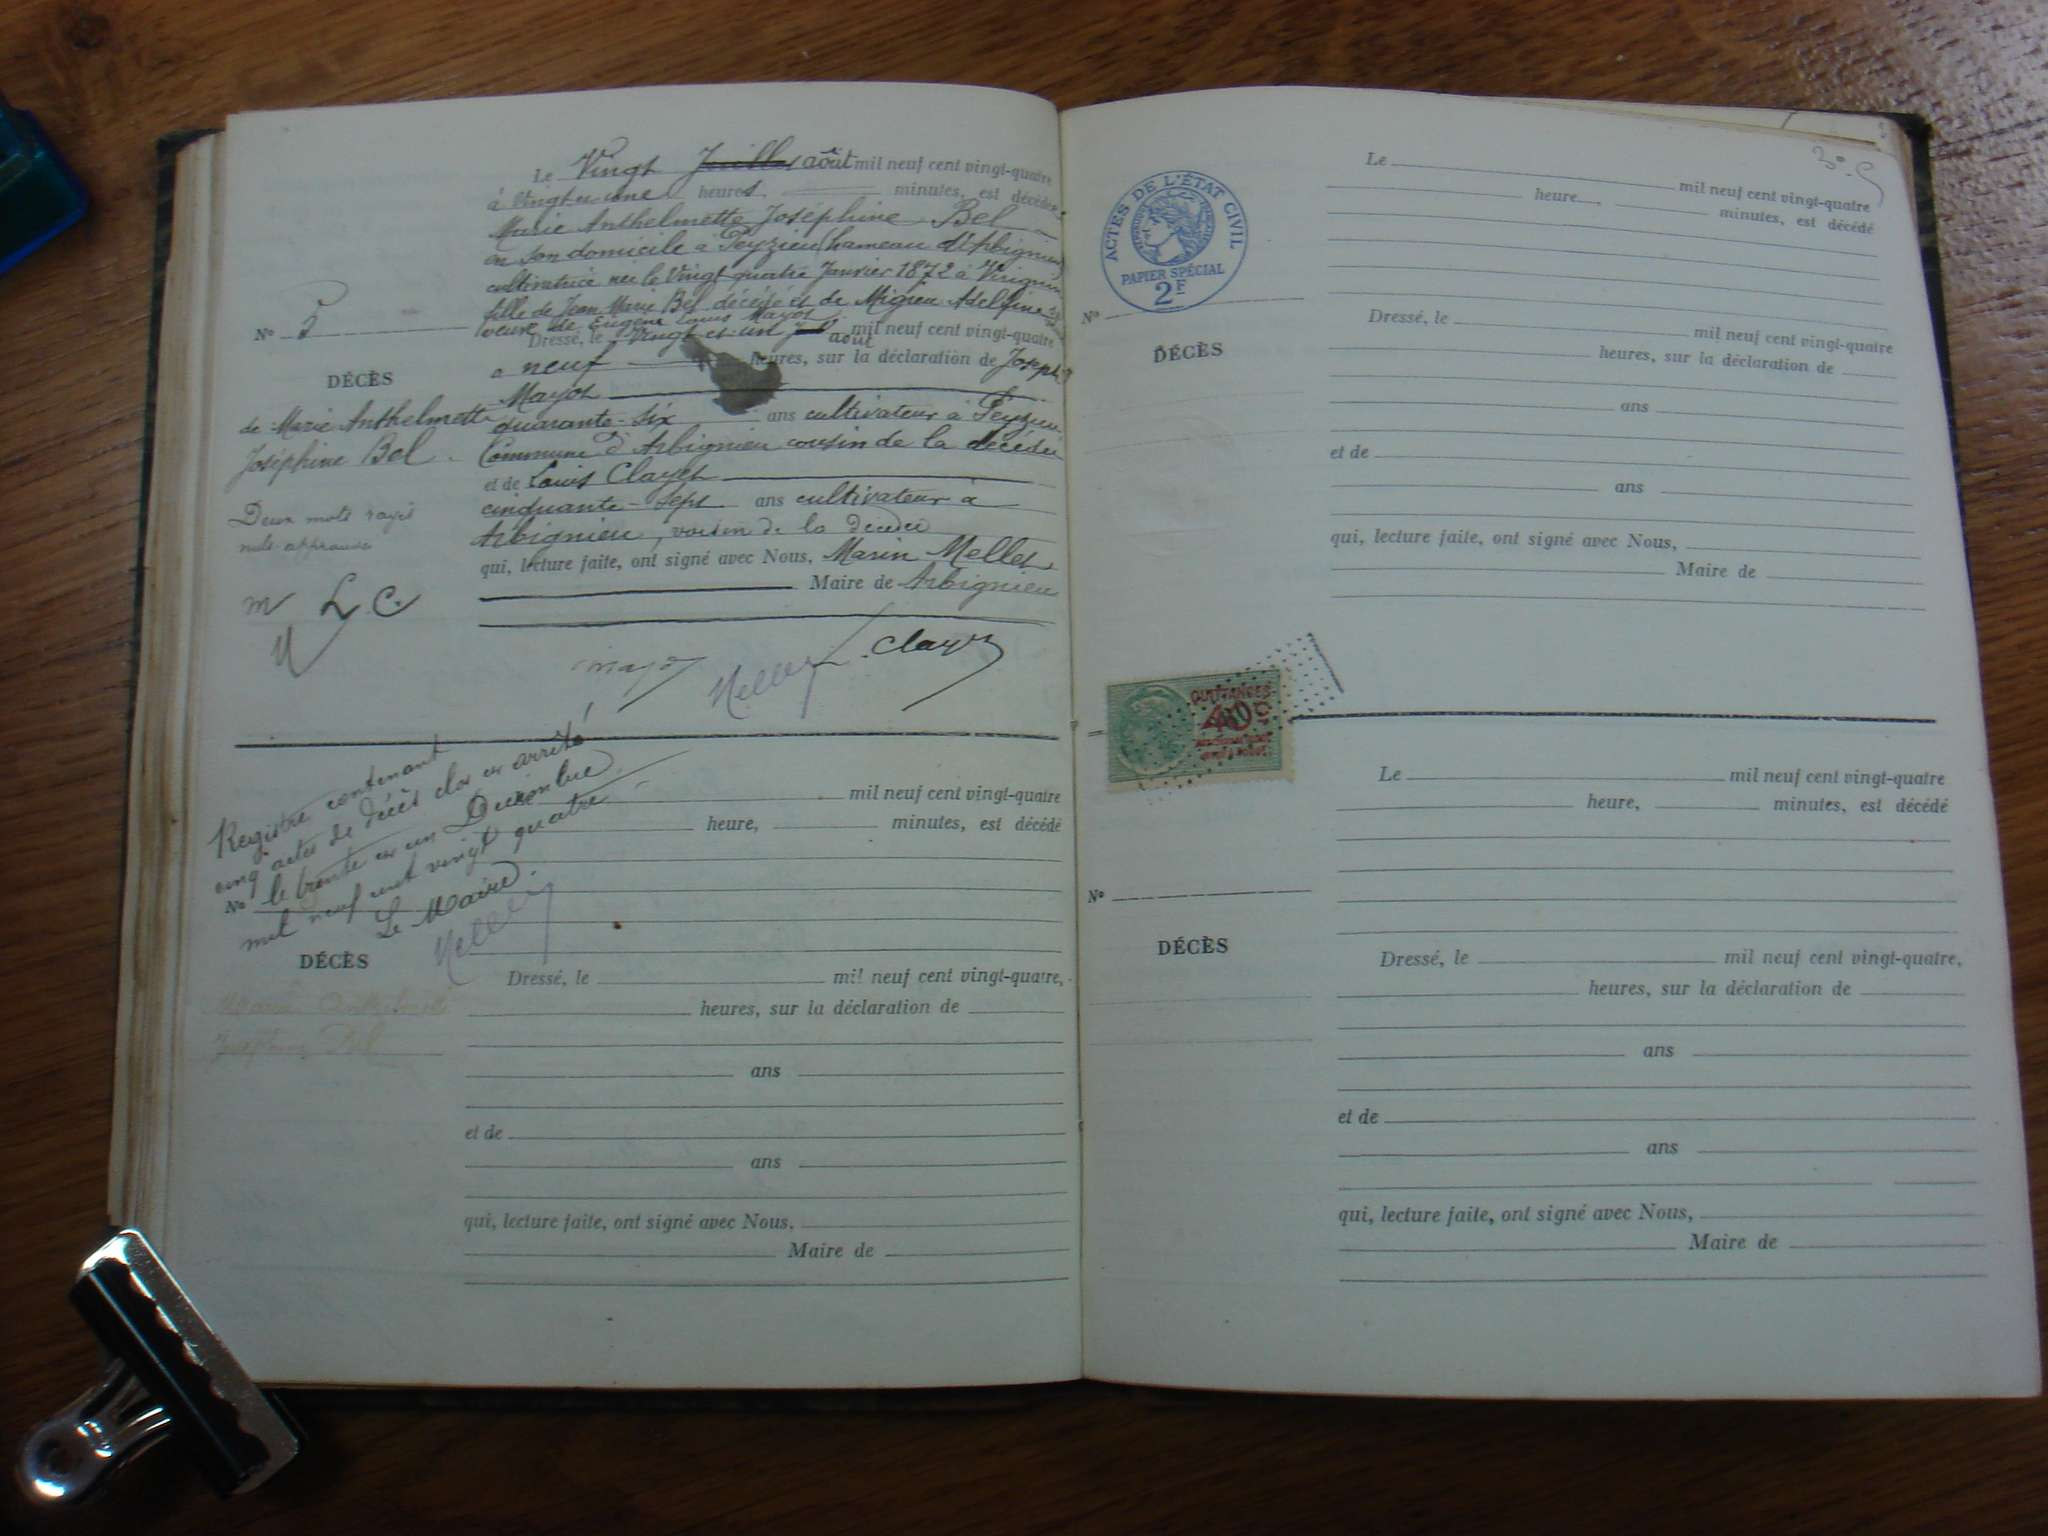 Le Vingt Juillet août mil neuf cent vingt-quatre
à Vingt et une heures minutes, est décédée
Marie Anthelmette Joséphine Bel
en son domicile à Peyzieu (hameau d'Arbignieu
cultivatrice née le Vingt quatre Janvier 1872 à Virignin
fille de Jean Marie Bel décédé et de Migieu Adelphine
veuve de Eugène Louis Mayot
No 5
Dressé, le Vingt et un août mil neuf cent vingt-quatre
a neuf heures, sur la déclaration de Joseph
DÉCÈS
Mayot
de Marie Anthelmette
quarante-six ans cultivateur à Peyzieu
Joséphine Bel
Commune d'Arbignieu cousin de la décédée
et de Louis Clayet
cinquante-sept ans cultivateur à
Deux mots rayés
Arbignieu, voisin de la décédée
nuls approuvés
qui, lecture faite, ont signé avec Nous, Marin Mellet
Maire de Arbignieu
m L.C.
mayot
L. Clayet
Registre contenant
cinq actes de décès clos et arrêté
le trente et un Décembre
mil neuf cent vingt quatre
Le Maire.
mil neuf cent vingt-quatre
heure, minutes, est décédé
No
DÉCÈS
Dressé, le mil neuf cent vingt-quatre,
Marie Anthelmette
heures, sur la déclaration de
Joséphine Bel
ans
et de
ans
qui, lecture faite, ont signé avec Nous,
Maire de
Le mil neuf cent vingt-quatre
heure, minutes, est décédé
ACTES DE L'ÉTAT CIVIL
PAPIER SPÉCIAL
2F
No
Dressé, le mil neuf cent vingt-quatre
DÉCÈS
heures, sur la déclaration de
ans
et de
ans
qui, lecture faite, ont signé avec Nous,
Maire de
QUITTANCES
40
Le mil neuf cent vingt-quatre
heure, minutes, est décédé
No
DÉCÈS
Dressé, le mil neuf cent vingt-quatre,
heures, sur la déclaration de
ans
et de
ans
qui, lecture faite, ont signé avec Nous,
Maire de